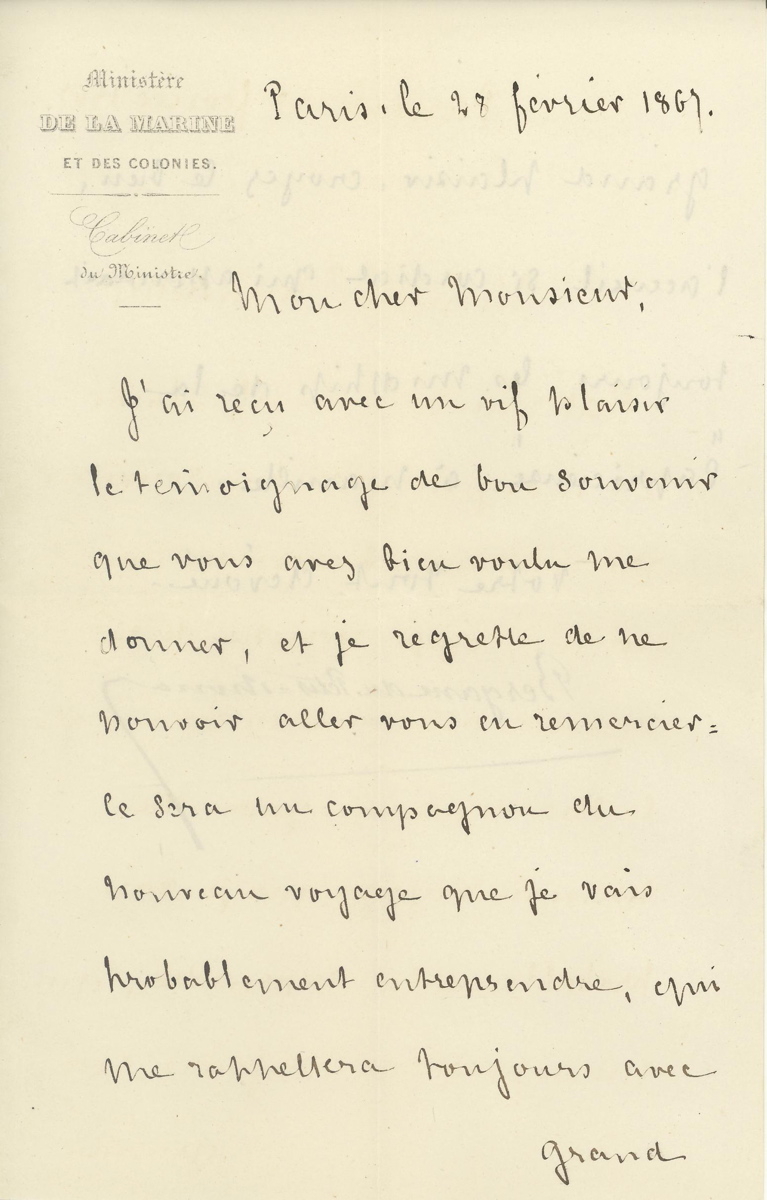 Ministère
DE LA MARINE
ET DES COLONIES.
Cabinet
du Ministre.
Paris, le 28 février 1867.
Mon cher Monsieur,
J'ai reçu avec un vif plaisir
le témoignage de bon souvenir
que vous avez bien voulu me
donner, et je regrette de ne
pouvoir aller vous en remercier=
ce sera un compagnon du
nouveau voyage que je vais
probablement entreprendre, qui
me rappellera toujours avec
grand